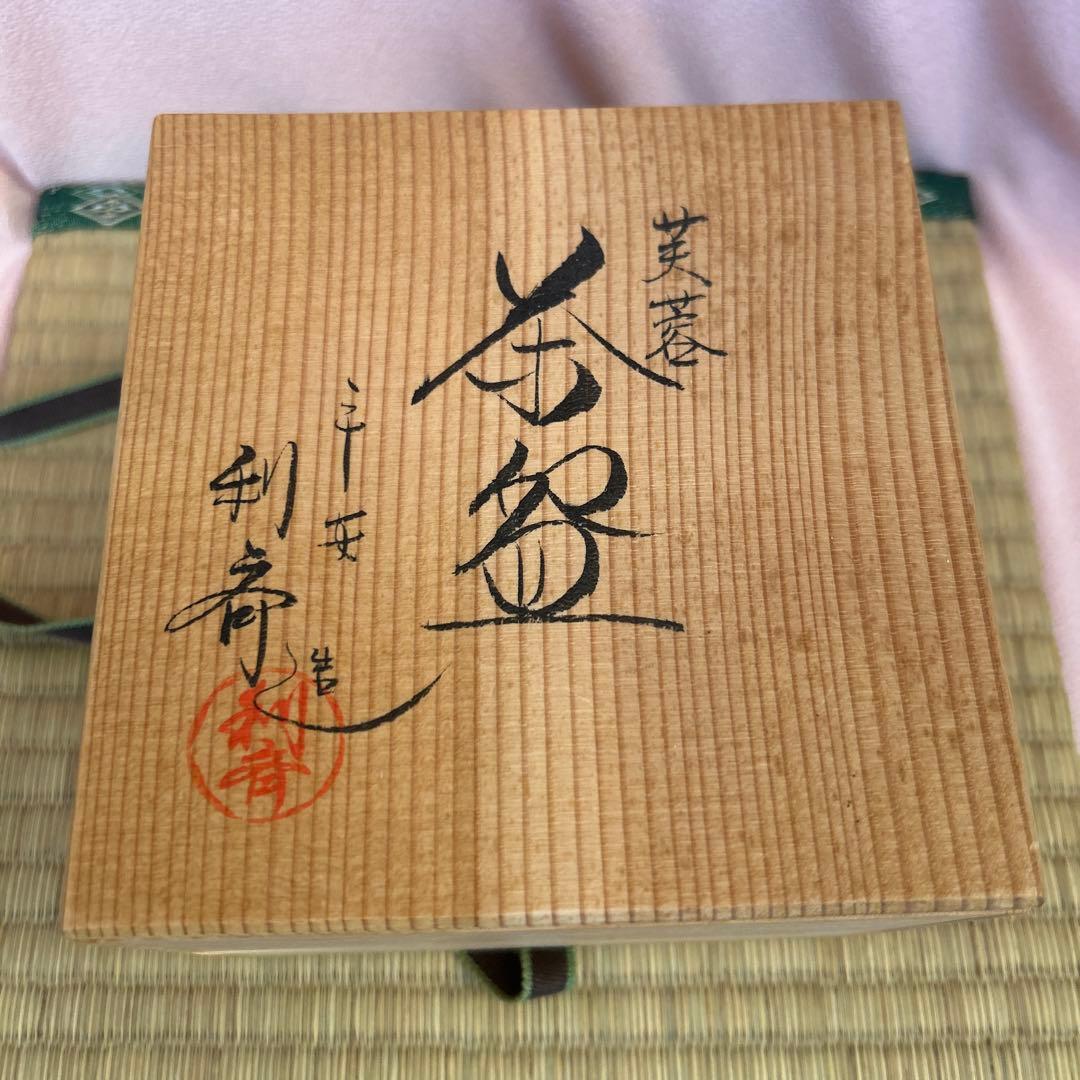 芙蓉
茶盌
平安
利斎造
利斎